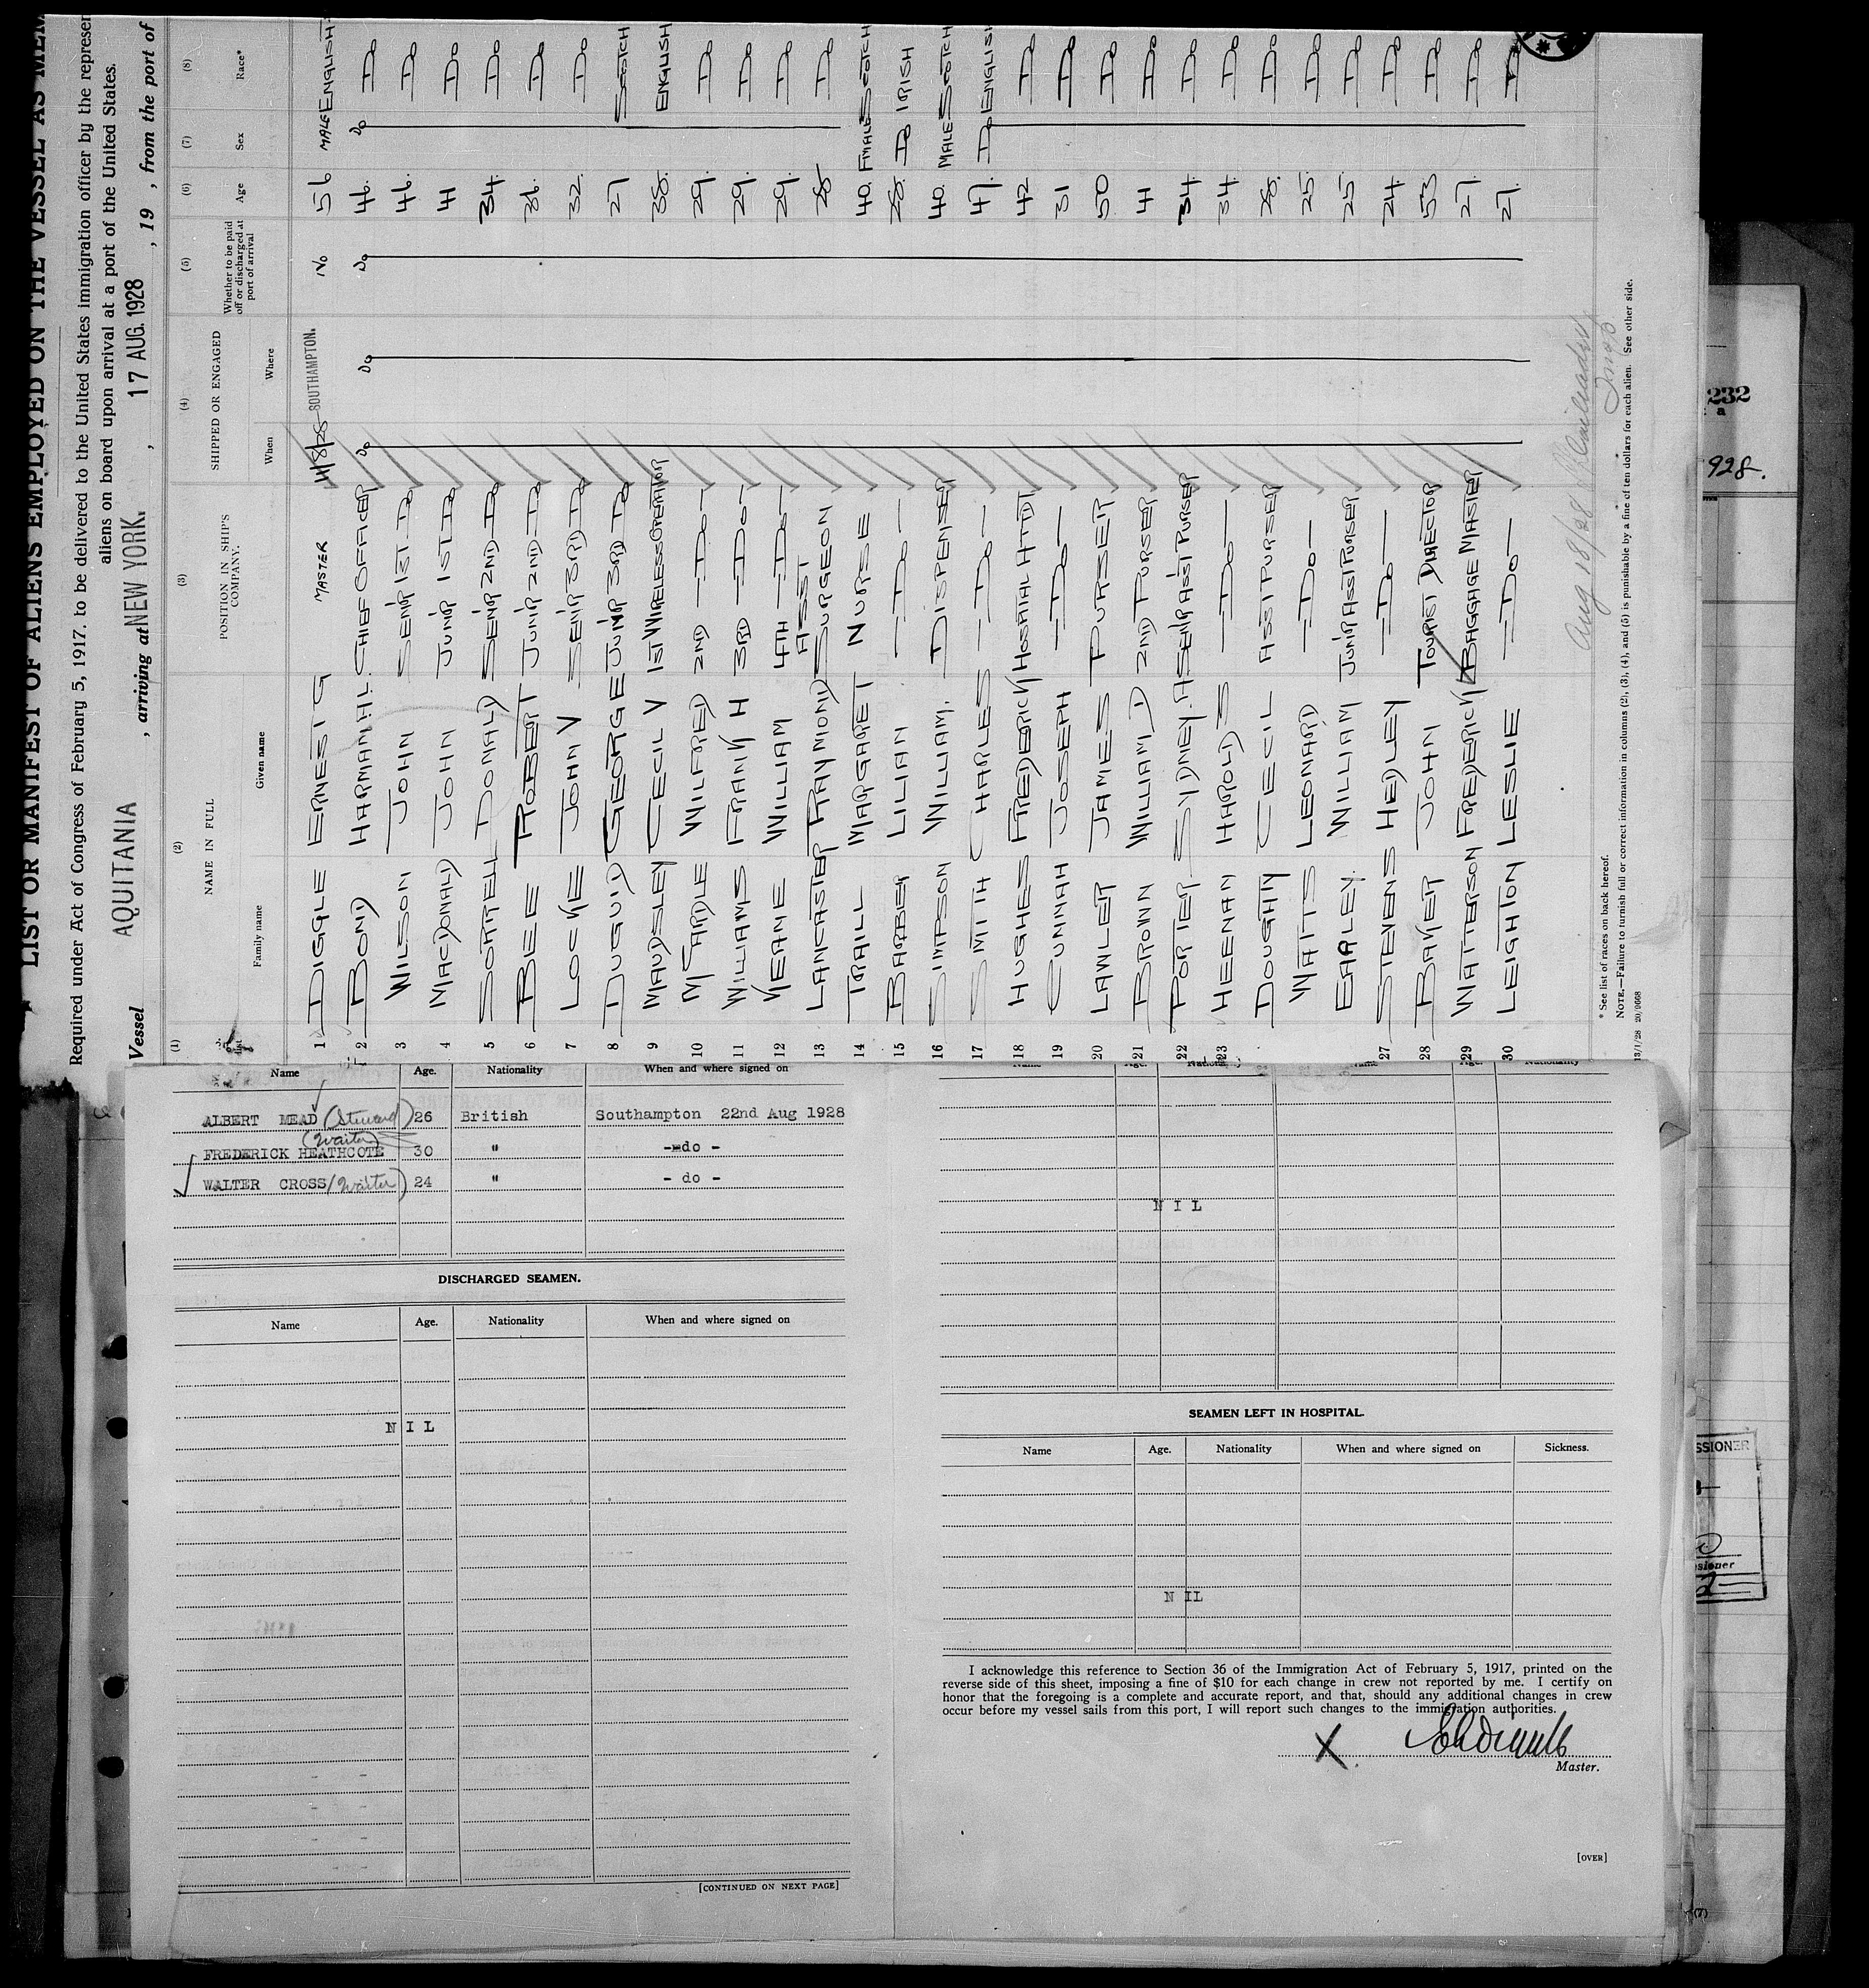 LIST OR MANIFEST OF ALIENS EMPLOYED ON THE VESSEL AS MEM
Required under Act of Congress of February 5, 1917. to be delivered to the United States immigration officer by the represen
aliens on board upon arrival at a port of the United States.
Vessel AQUITANIA , arriving at NEW YORK. , 17 AUG. 1928 , 19 , from the port of
(1) (2) (3) (4) (5) (6) (7) (8)
NAME IN FULL POSITION IN SHIP'S COMPANY. SHIPPED OR ENGAGED Whether to be paid off or discharged at port of arrival Age Sex Race*
Family name Given name When Where
1 DIGGLE ERNEST G MASTER 11/8/28 SOUTHAMPTON. NO 56 MALE ENGLISH
2 BOND HARMAN H. CHIEF OFFICER Do Do Do 46. Do Do
3 WILSON JOHN SENR 1ST Do 46. Do
4 MACDONALD JOHN JUNR 1ST Do 41 Do
5 SORRELL DONALD SENR 2ND Do 34. Do
6 BEE ROBERT T JUNR 2ND Do 36. Do
7 LOCKE JOHN V SENR 3RD Do 32. Do
8 DUGUID GEORGE JUNR 3RD Do 27 SCOTCH
9 MAUDSLEY CECIL V 1ST WIRELESS OPERATOR 38. ENGLISH
10 McARDLE WILFRED 2ND —Do— 29. Do
11 WILLIAMS FRANK H 3RD —Do— 29. Do
12 KEANE WILLIAM 4TH —Do— 29. Do
13 LANCASTER RAYMOND ASST SURGEON 28 Do
14 TRAILL MARGARET NURSE 40. FMALE SCOTCH
15 BARBER LILIAN —Do— 28. Do IRISH
16 SIMPSON WILLIAM. DISPENSER 40. MALE SCOTCH
17 SMITH CHARLES —Do— 47. Do ENGLISH
18 HUGHES FREDERICK HOSPITAL ATTDT 42 Do
19 CUNNAH JOSEPH —Do— 31 Do
20 LAWLER JAMES PURSER 50 Do
21 BROWN WILLIAM D 2ND PURSER 41 Do
22 PORTER SYDNEY. A SENR ASST PURSER 34. Do
23 HEENAN HAROLD S —Do— 34. Do
DOUGHTY CECIL ASST PURSER 28. Do
WATTS LEONARD —Do— 25. Do
EARLEY. WILLIAM JUNR ASST PURSER 25. Do
27 STEVENS HEDLEY —Do— 24. Do
28 BAKER JOHN TOURIST DIRECTOR 53 Do
29 WATTERSON FREDERICK BAGGAGE MASTER 27. Do
30 LEIGHTON LESLIE —Do— 27. Do
* See list of races on back hereof.
NOTE.—Failure to turnish full or correct information in columns (2), (3), (4), and (5) is punishable by a fine of ten dollars for each alien. See other side.
13/1/28 20/9668
Aug 18/28
Insp
232
a
928.
SSIONER
sioner
Name Age. Nationality When and where signed on
ALBERT MEAD (Steward) 26 British Southampton 22nd Aug 1928
(Waiter)
FREDERICK HEATHCOTE 30 " - do -
WALTER CROSS (Waiter) 24 " - do -
DISCHARGED SEAMEN.
Name Age. Nationality When and where signed on
NIL
[CONTINUED ON NEXT PAGE]
NIL
SEAMEN LEFT IN HOSPITAL.
Name Age. Nationality When and where signed on Sickness.
NIL
I acknowledge this reference to Section 36 of the Immigration Act of February 5, 1917, printed on the
reverse side of this sheet, imposing a fine of $10 for each change in crew not reported by me. I certify on
honor that the foregoing is a complete and accurate report, and that, should any additional changes in crew
occur before my vessel sails from this port, I will report such changes to the immigration authorities.
X.
Master.
[OVER]